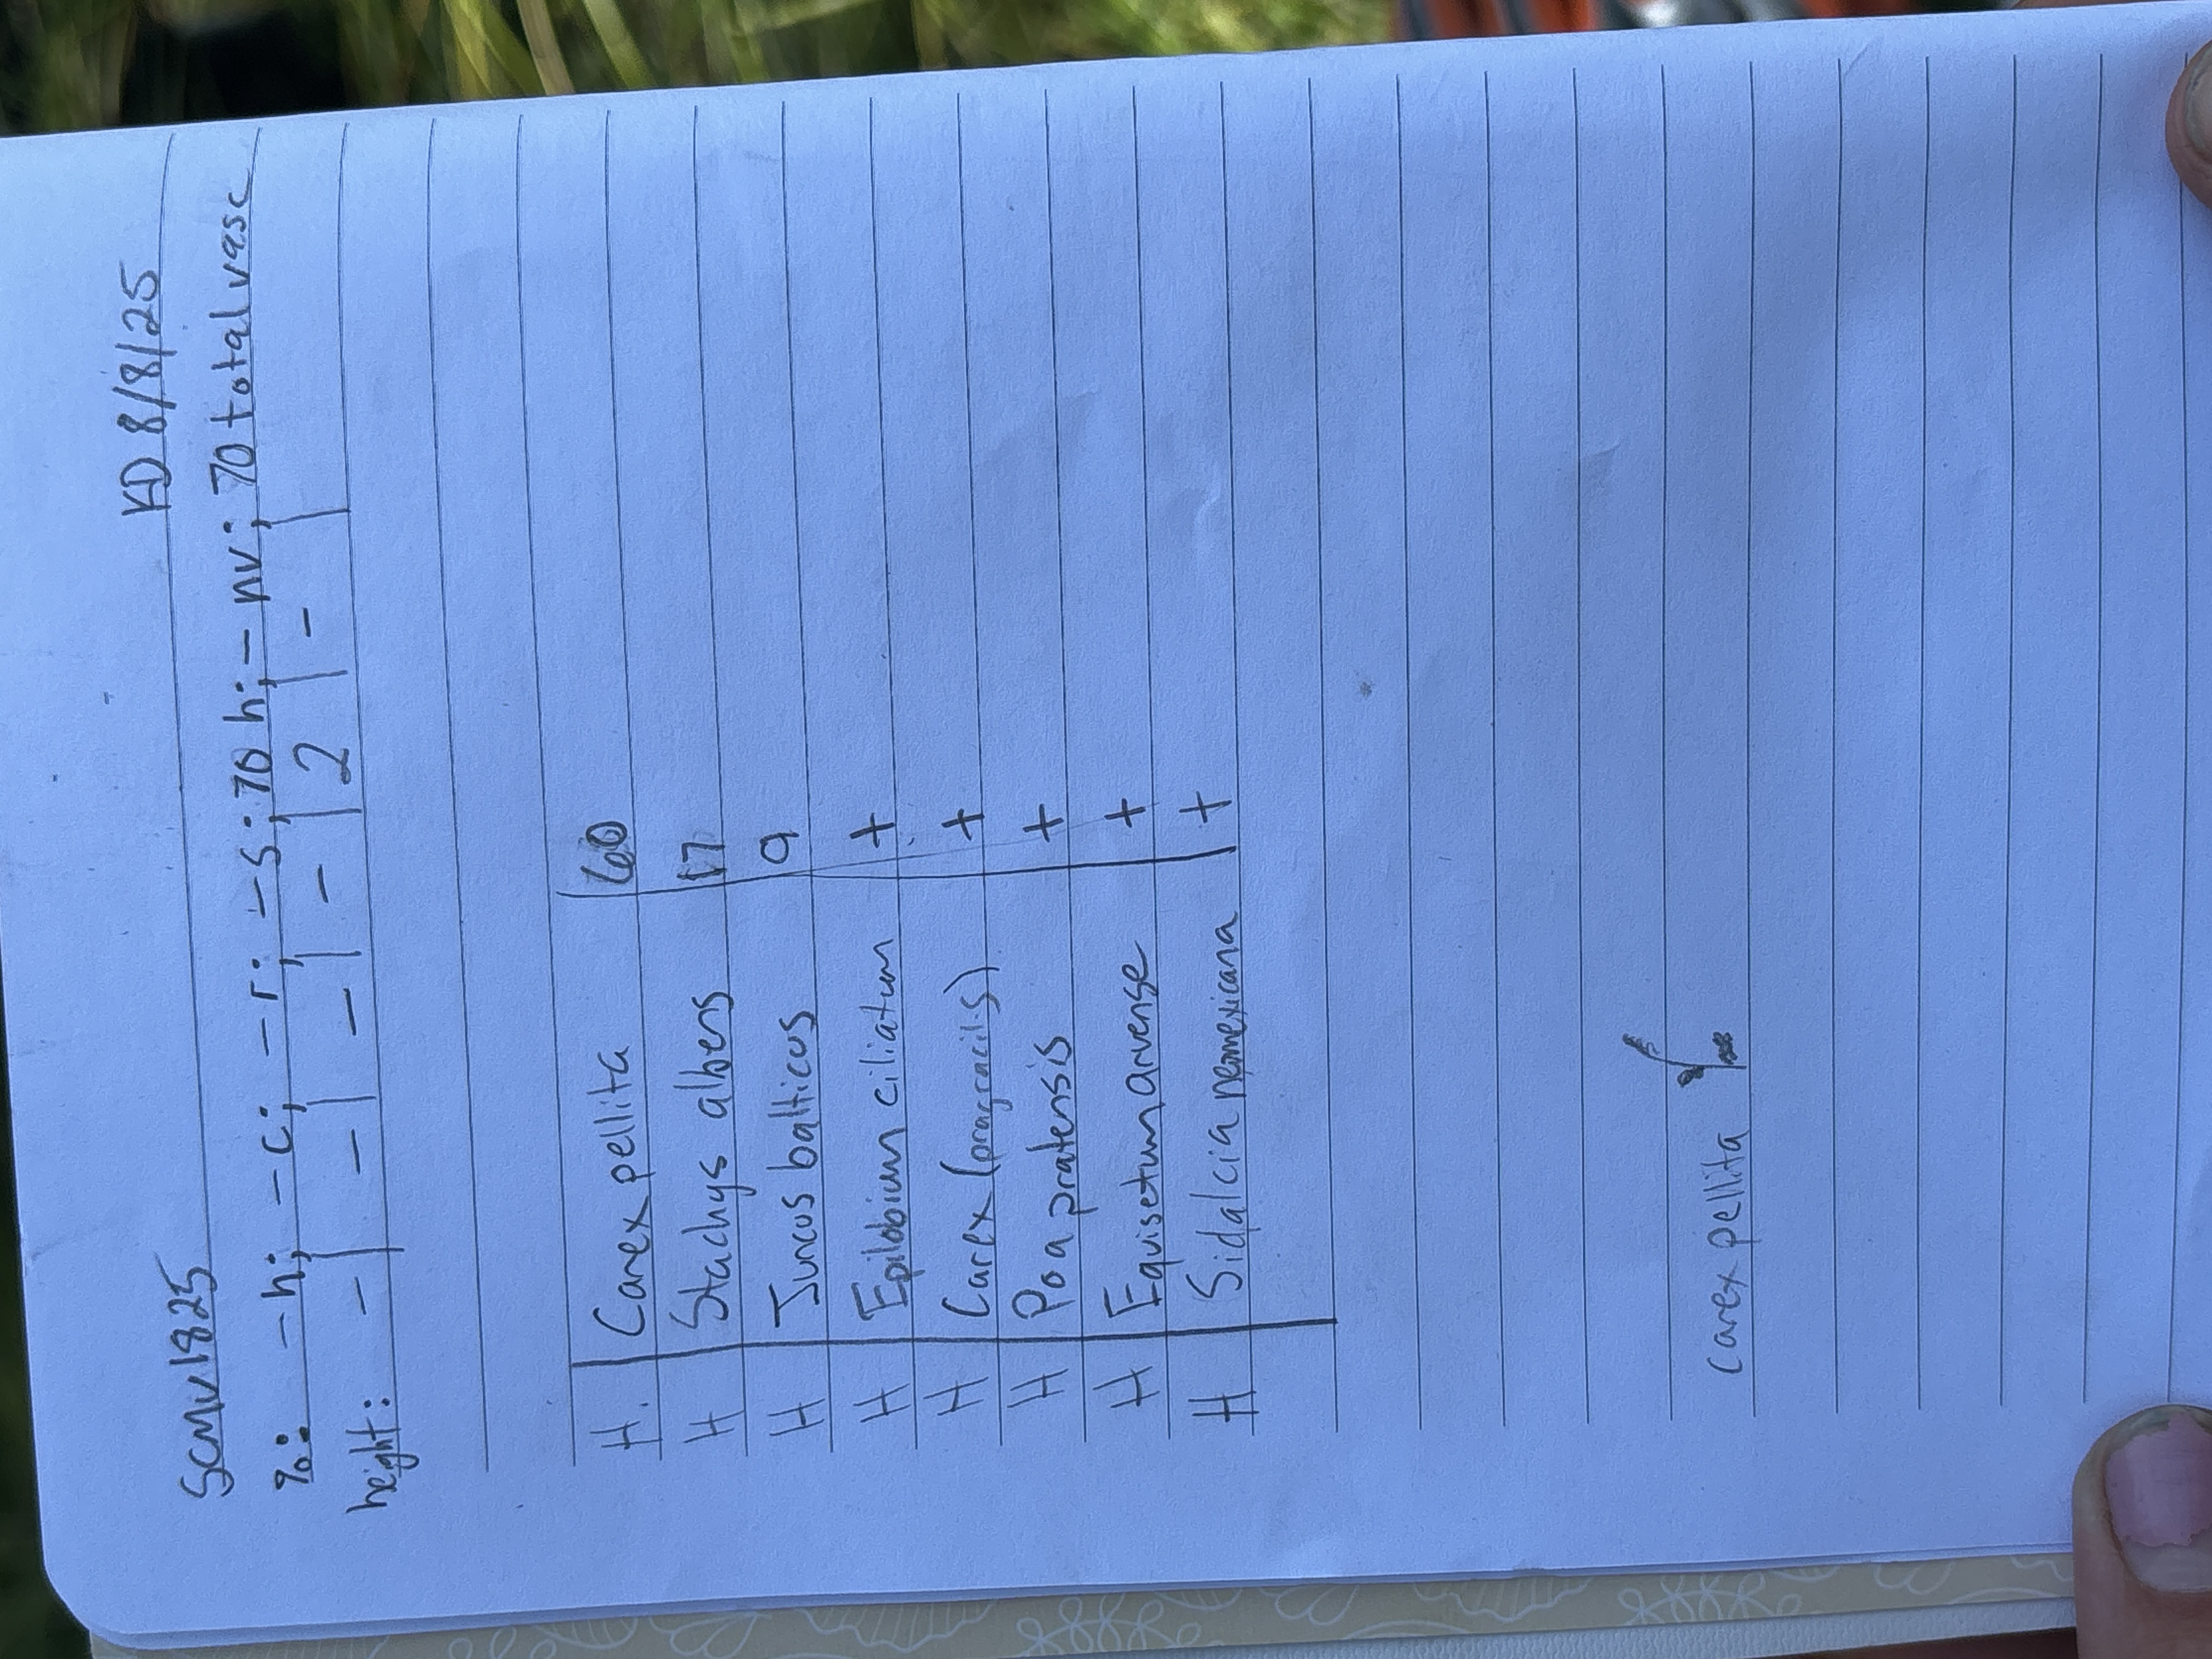 SCMV1825 KD 8/8/25
%: -h; -c; -r; -s; 70 h; -nv; 70 total vasc
height: - | - | - | - | 2 | - |
H. Carex pellita 60
H Stachys albens 17
H Juncus balticus 9
H Epilobium ciliatum +
H Carex (pragracilis) +
H Poa pratensis +
H Equisetum arvense +
H Sidalcia neomexicana +
carex pellita